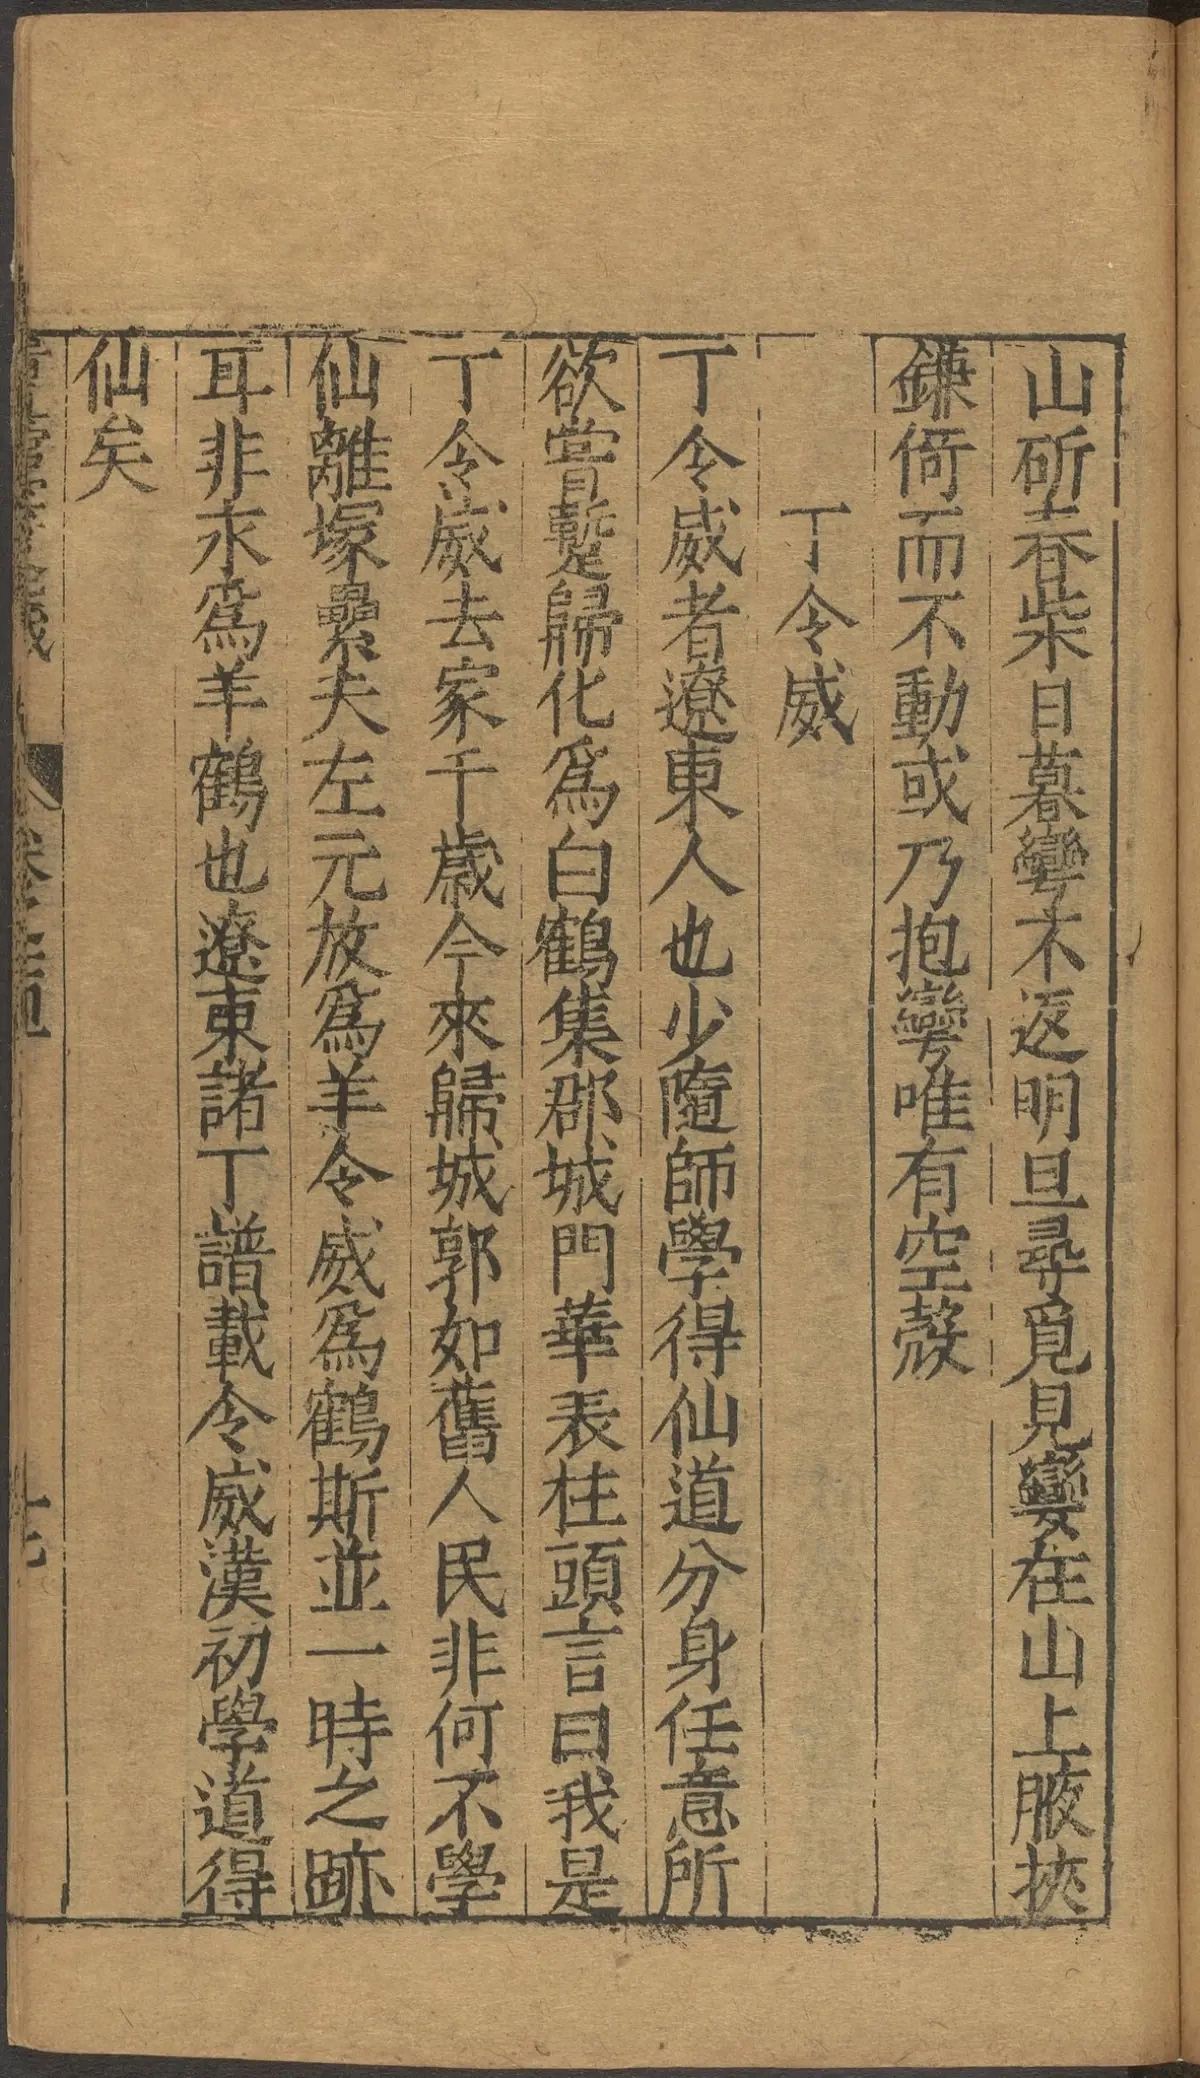 山斫春柴日暮彎不返明旦尋覓見孌在山上腋挾
鎌倚而不動或乃抱彎唯有空殼
丁令威
丁令威者遼東人也少隨師學得仙道分身任意所
欲嘗蹔歸化爲白鶴集郡城門華表柱頭言曰我是
丁令威去家千歲今來歸城郭如舊人民非何不學
仙離塚纍夫左元放爲羊令威爲鶴斯並一時之跡
耳非永爲羊鶴也遼東諸丁譜載令威漢初學道得
仙矣